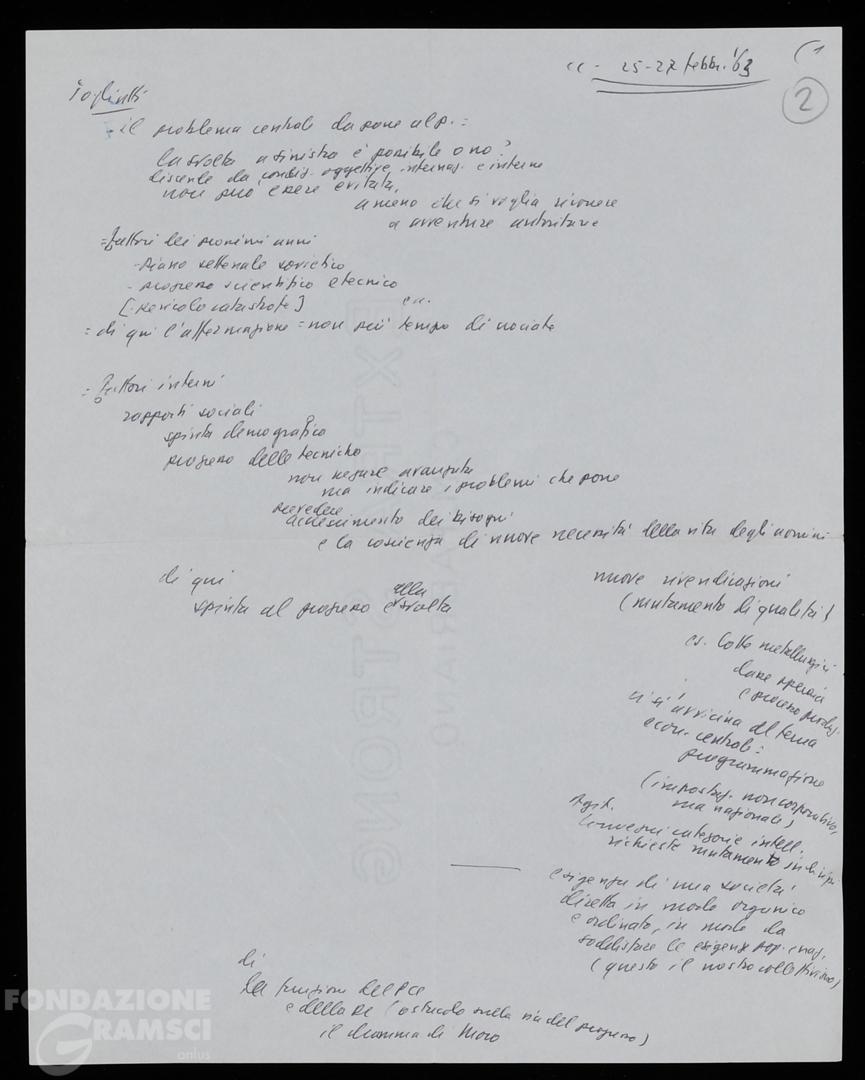 CC - 25-27 febbr. '63
(1
2
Togliatti
- il problema centrale da porre al p. :
la svolta a sinistra è possibile o no?
discende da condiz. oggettive, internaz. e interne
non può essere evitata,
a meno che si voglia ricorrere
a avventure autoritarie
= fattori dei prossimi anni
- piano settennale sovietico
- progresso scientifico e tecnico
[- pericolo catastrofe] ecc.
= di qui l'affermazione = non più tempo di crociate
= Fattori interni
rapporti sociali
spinta demografica
progresso delle tecniche
non negare avanzata
ma indicare i problemi che pone
prevedere
accrescimento dei bisogni
e la coscienza di nuove necessità della vita degli uomini
di qui
spinta al progresso e alla svolta
nuove rivendicazioni
(mutamento di qualità)
es. lotta metallurgici
classe operaia
e processo produz.
ci si avvicina al tema
econ. centrale :
programmazione
(impostaz. non corporativa,
ma nazionale)
Agit.
categorie intell.
richieste mutamento indirizzi
esigenza di una società
diretta in modo organico
e ordinato, in modo da
soddisfare le esigenze pop. e naz.
(questo il nostro collettivismo)
di
la funzione del PCI
e della DC (ostacolo sulla via del progresso)
il dramma di Moro
EXTRA STRONG
FONDAZIONE
GRAMSCI
onlus